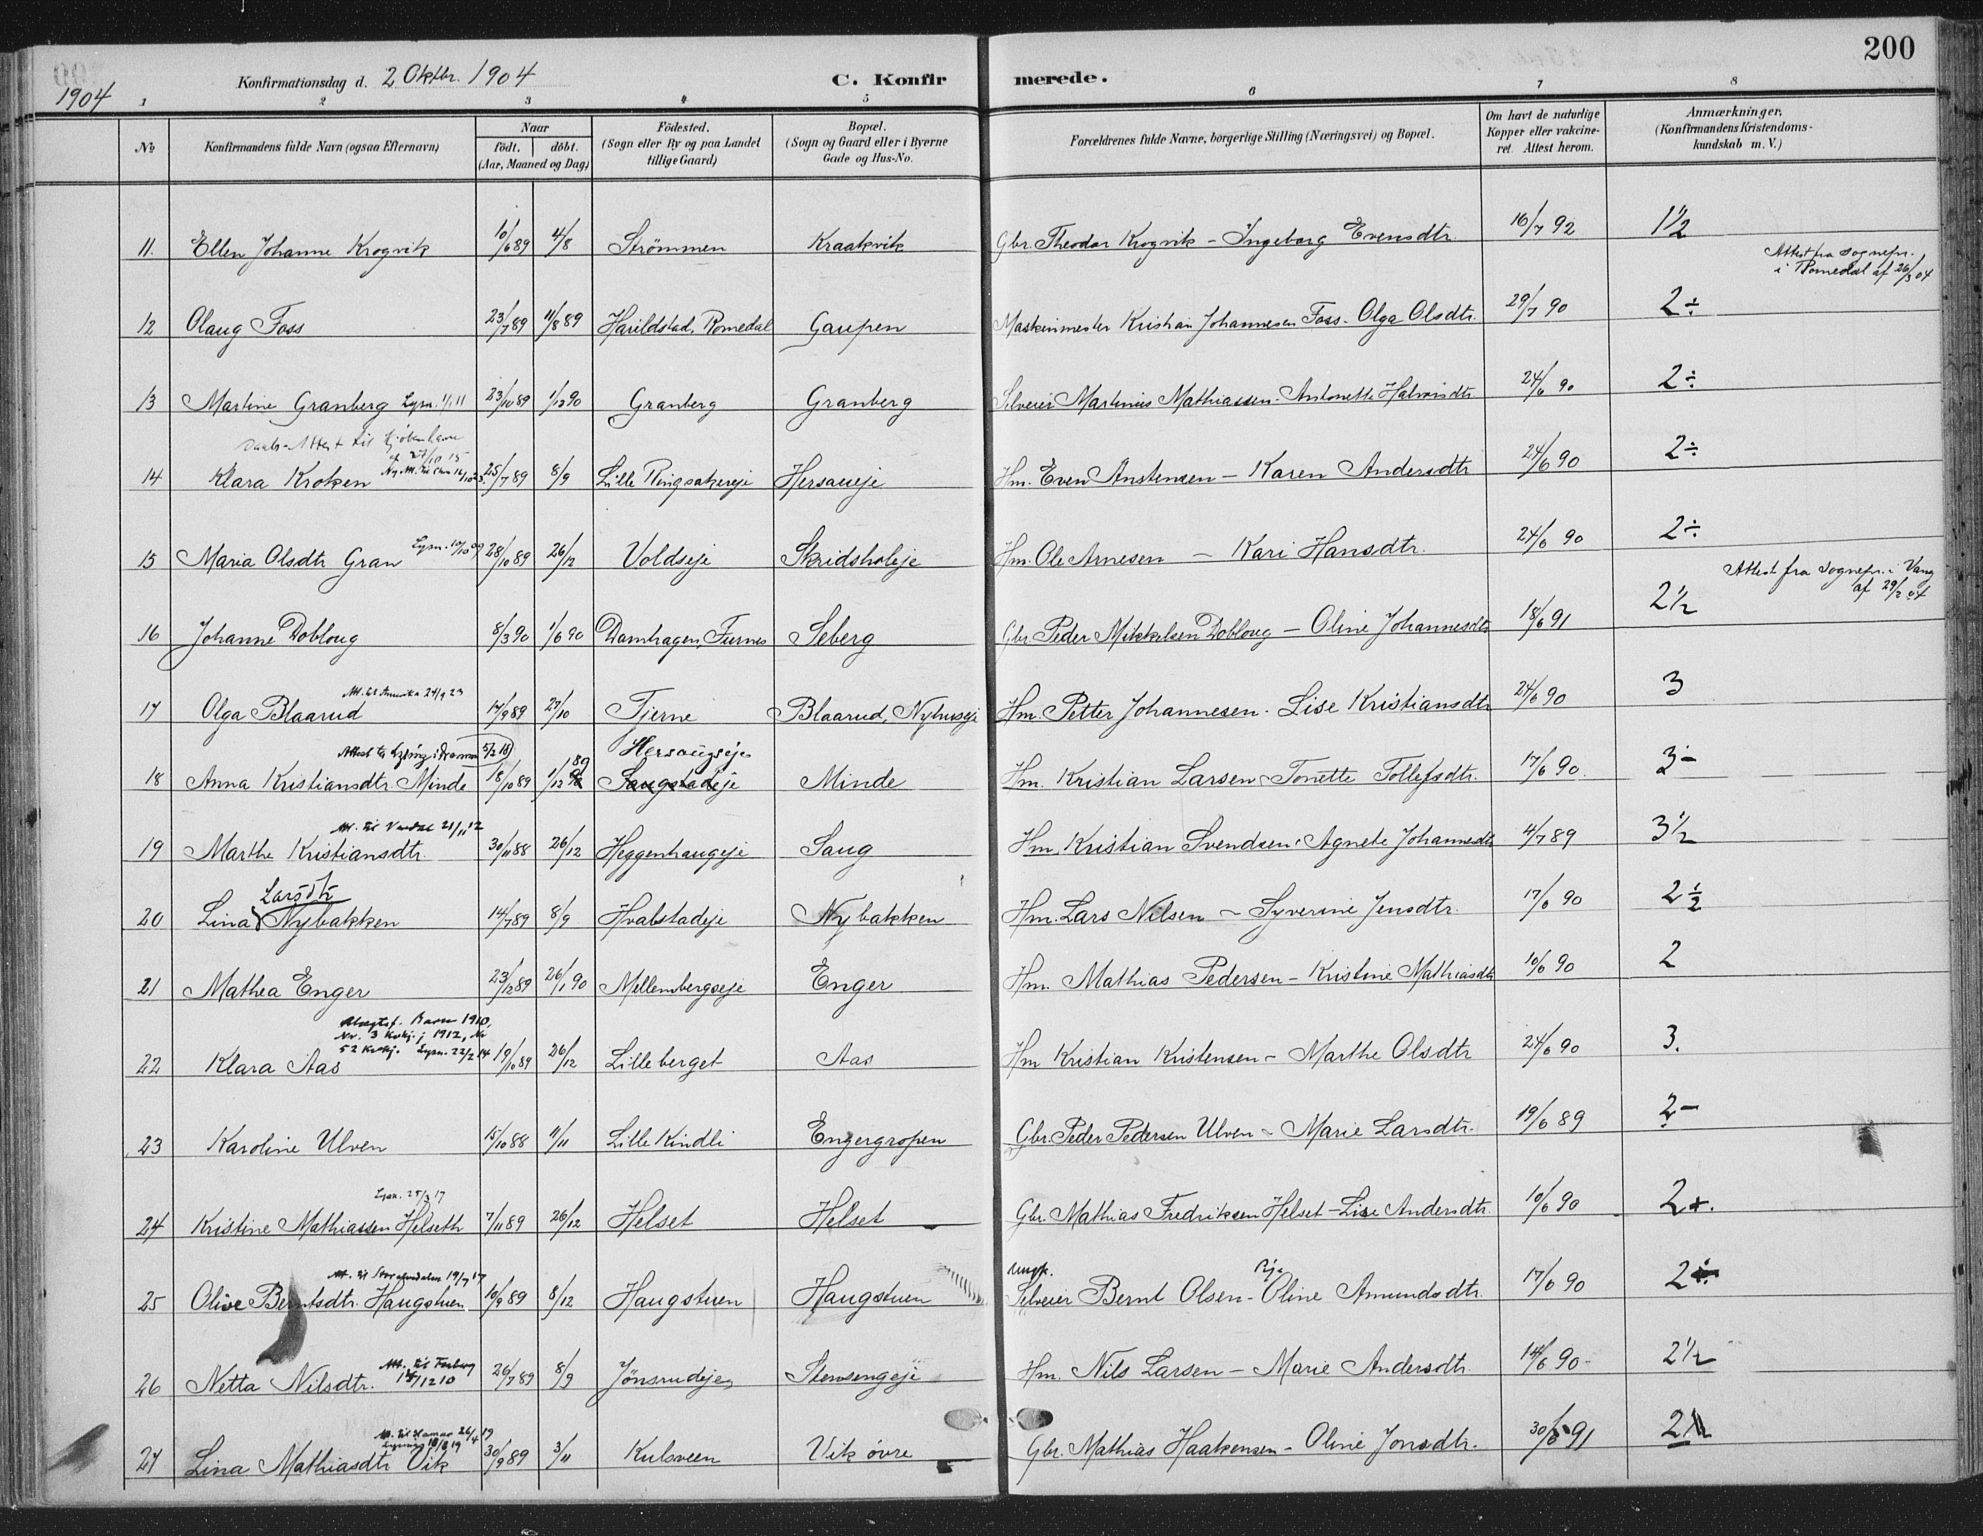 200
1904
Konfirmationsdag d. 2 Oktbr. 1904 C. Konfirmerede.
1 2 3 4 5 6 7 8
No Konfirmandens fulde Navn (ogsaa Efternavn) Naar født. døbt. (Aar, Maaned og Dag) Fødested. (Sogn eller By og paa Landet tillige Gaard) Bopæl. (Sogn og Gaard eller i Byerne Gade og Hus-No. Forældrenes fulde Navne, borgerlige Stilling (Næringsvei) og Bopæl. Om havt de naturlige Kopper eller vakcineret. Attest herom. Anmærkninger, (Konfirmandens Kristendomskundskab m. V.)
11. Ellen Johanne Krogvik 10/6 89 4/8 Strömmen Kraakvik Gbr. Theodor Krogvik - Ingeborg Evensdtr. 16/7 92 1½
Attest fra Sognepr. i Romedal af 26/3 04
12 Olaug Foss 23/7 89 11/8 89 Harildstad, Romedal Gaupen Maskinmester Kristian Johannesen Foss - Olga Olsdtr. 29/7 90 2÷
13 Martine Granberg Lysn. 1/1 11 23/10 89 1/12 90 Granberg Granberg Selveier Martinus Mathiassen - Antonette Halvorsdtr 24/6 90 2÷
Daabs-Attest til Kjøbenhavn af 27/10 15
14 Klara Kroken 25/7 89 8/9 Lille Ringsakereje Hersaueje Hm. Even Anstensen - Karen Andersdtr 24/6 90 2÷
15 Maria Olsdtr Gran Lysn. 10/10 09 28/10 89 26/12 Voldseje Skridsholeje Hm. Ole Arnesen - Kari Hansdtr. 24/6 90 2÷
Attest fra Sognepr. i Vang af 29/2 04
16 Johanne Dobloug 8/3 90 1/6 90 Damhagen, Furnes Seberg Gbr. Peder Mikkelsen Dobloug - Oline Johannesdtr 18/6 91 2½
Att. til Amerika 24/9 23
17 Olga Blaarud 17/9 89 27/10 Tjerne Blaarud, Nyhuseje Hm. Petter Johannesen - Lise Kristiansdtr 24/6 90 3
5/2 18 Hersougseje
18 Anna Kristiansdtr. Minde 18/10 89 1/12 89 Saugstadeje Minde Hm. Kristian Larsen - Tonette Tollefsdtr. 17/6 90. 3-
Att. til Vardal 21/11 12
19 Marthe Kristiansdtr. 30/11 88 26/12 Heggenhaugeje Saug Hm. Kristian Svendsen - Agnete Johannesdtr 4/7 89 3½
Larsdtr
20 Lina Nybakken 14/7 89 8/9 Hvalstadeje Nybakken Hm. Lars Nilsen - Syverine Jensdtr. 17/6 90 2½
21 Mathea Enger 23/12 89 26/1 90 Mellembergseje Enger Hm. Mathias Pedersen - Kristine Mathiasdtr 10/6 90 2
Uægtef. Barn 1910,
Nr. 3 Kvkj. i 1912, Nr
52 Kvkj. Lysn. 22/2 14
22 Klara Aas 19/10 89 26/12 Lilleberget Aas Hm Kristian Kristensen - Marthe Olsdtr 24/6 90 3.
23 Karoline Ulven 15/10 88 11/11 Lille Kindli Engergropen Gbr. Peder Pedersen Ulven - Marie Larsdtr. 19/6 89 2-
Lysn. 25/3 17
24 Kristine Mathiassen Helseth 7/11 89 26/12 Helset Helset Gbr. Mathias Fredriksen Helset - Lise Andersdtr. 10/6 90 2+.
Att. til Storelvedalen 19/7 17 Ungk. Pige
25 Olive Berntsdtr. Haugstuen 10/9 89 8/12 Haugstuen Haugstuen Selveier Bernt Olsen - Oline Amundsdtr. 17/6 90 2÷
Att. til Faaberg 14/12 10
26 Netta Nilsdtr. 26/7 89 8/9 Jönsrudeje Stensengeje Hm. Nils Larsen - Marie Andersdtr. 14/6 90 2½
Att. til Hamar 26/4 19
Lysning 10/8 19
27 Lina Mathiasdtr Vik 30/9 89 3/11 Kulsveen Vik övre Gbr. Mathias Haakensen - Oline Jonsdtr. 30/6 91 2